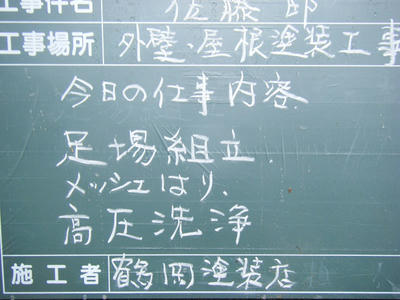 工事件名 佐藤邸
工事場所 外壁、屋根塗装工事
今日の仕事内容
足場組立
メッシュはり、
高圧洗浄
施工者 鶴岡塗装店